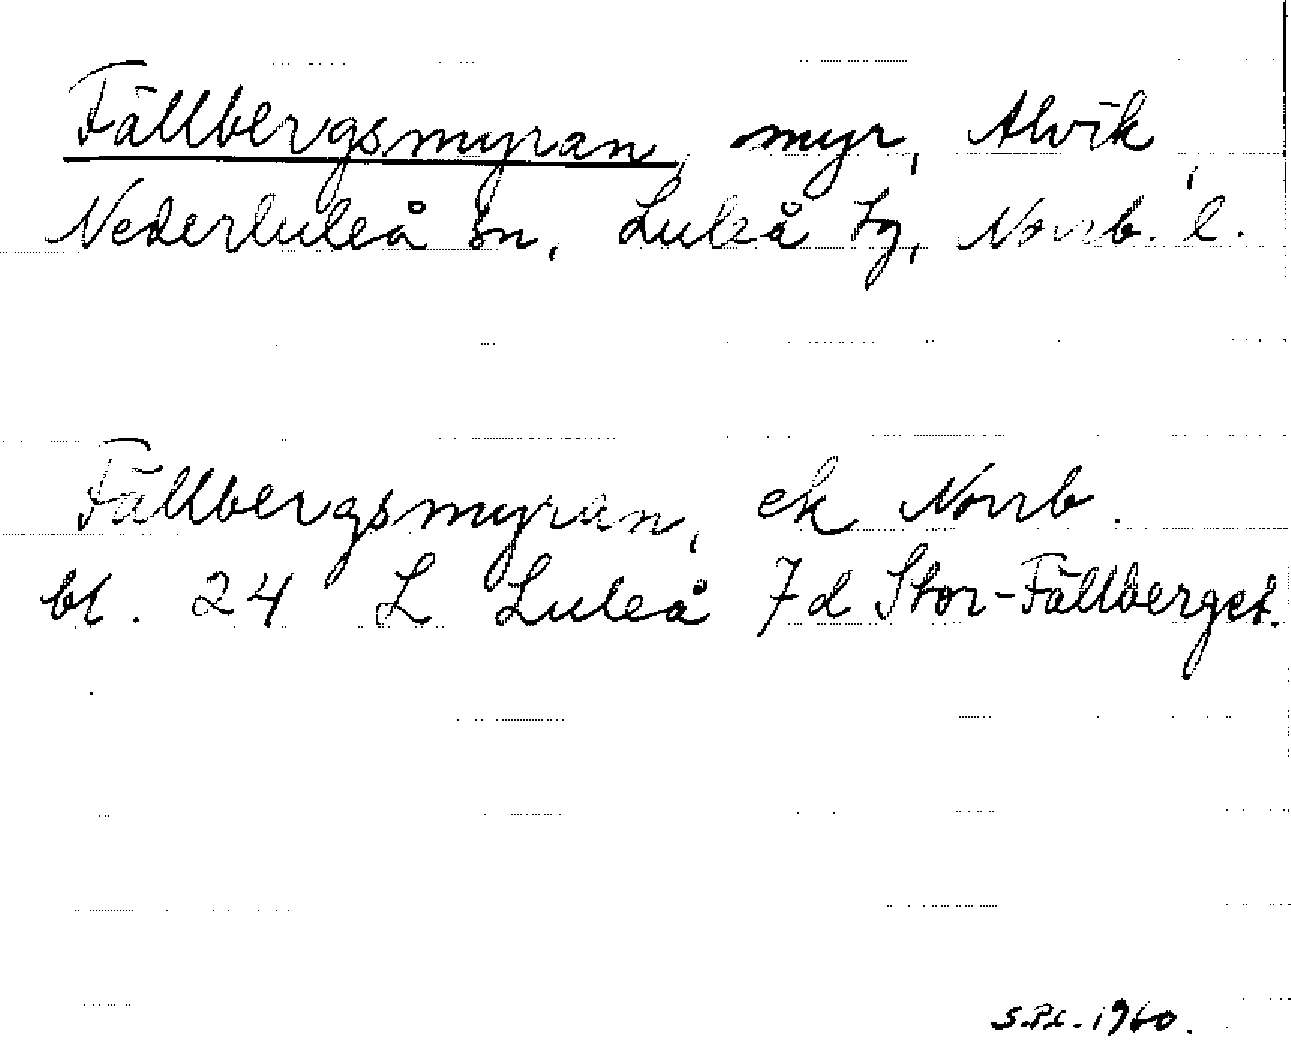 Fällbergsmyran, myr, Alvik,
Nederluleå sn, Luleå tg, Norrb. l.
Fällbergsmyran, ek Norrb.
bl. 24 L Luleå 7d Stor-Fällberget.
1960.